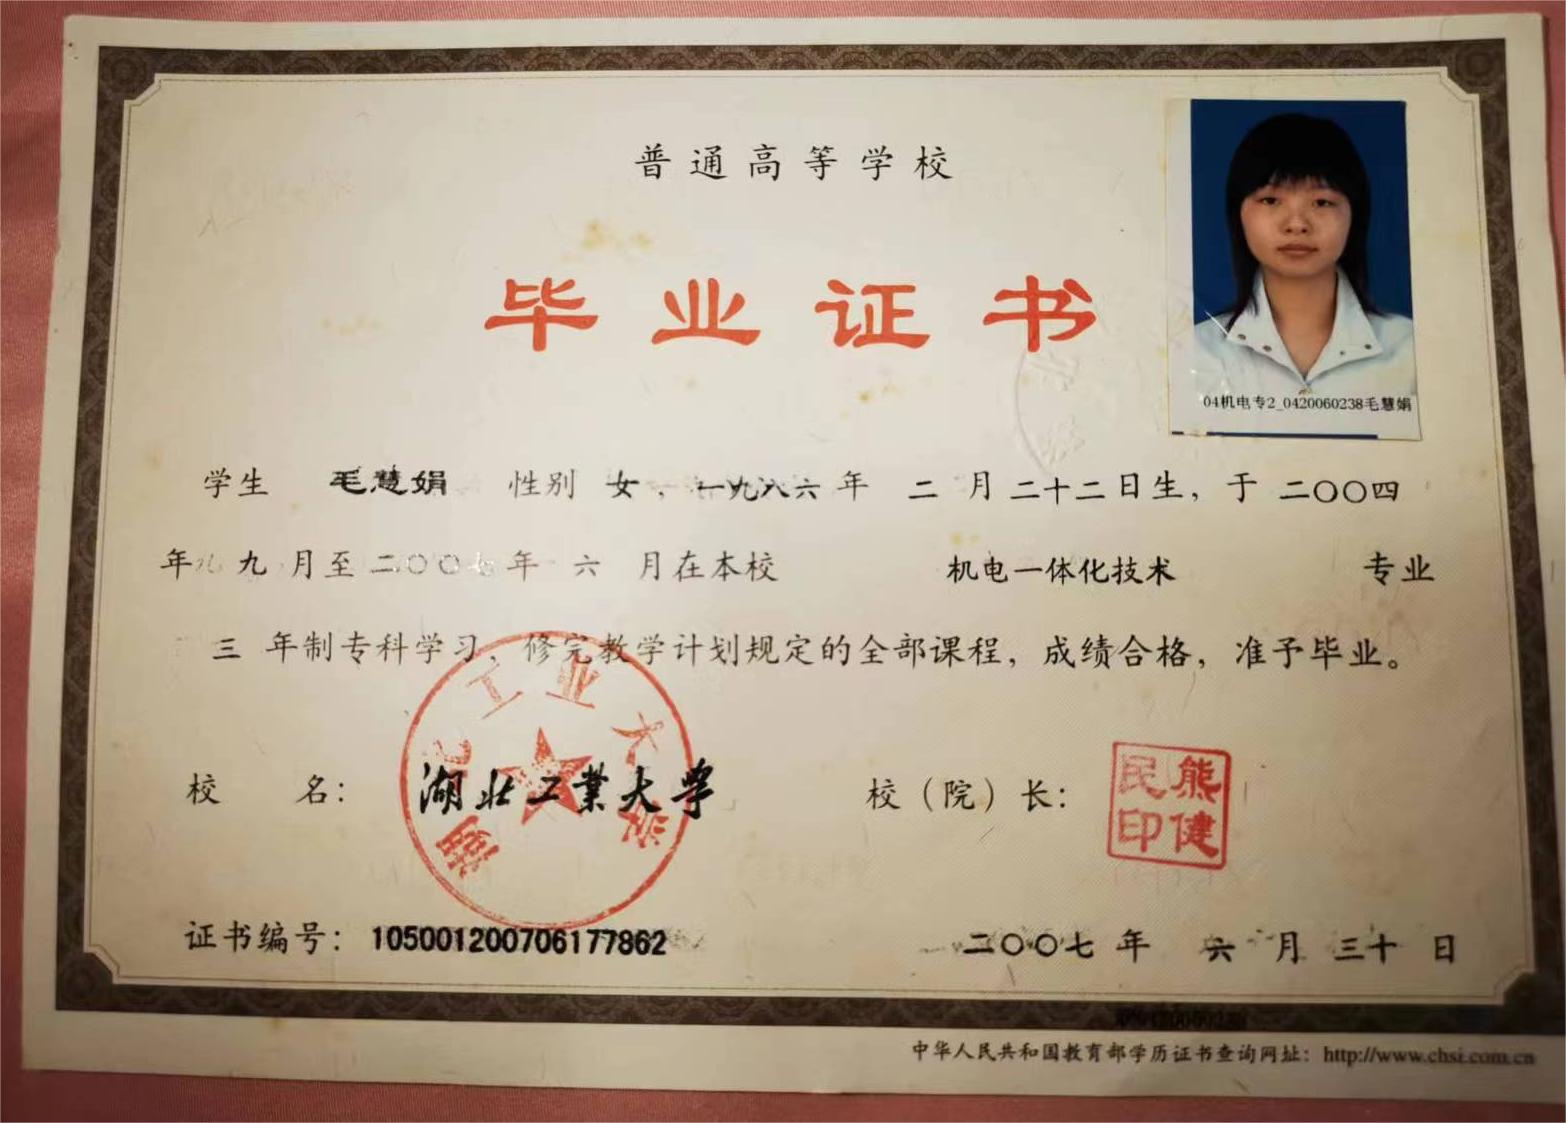 普通高等学校
毕业证书
04机电专2_0420060238毛慧娟
学生 毛慧娟 性别 女，一九八六年 二 月二十二日生，于 二〇〇四
年 九 月至二〇〇七年 六 月在本校 机电一体化技术 专业
三 年制专科学习，修完教学计划规定的全部课程，成绩合格，准予毕业。
湖北工业大学
校 名： 湖北工業大学 校（院）长：
熊健民印
证书编号： 105001200706177862 二〇〇七年 六 月 三十 日
中华人民共和国教育部学历证书查询网址：http://www.chsi.com.cn